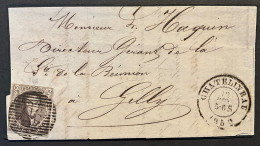 Monsieur H. Haquin
Directeur Gérant de la
Sté de la Réunion
à
Gilly
CHATELINEAU
5-6S